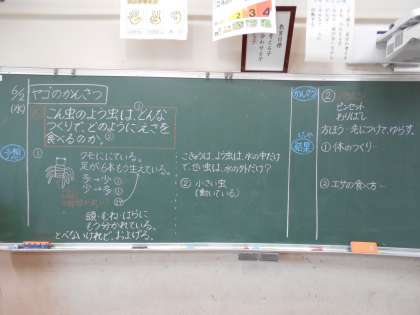 6/2
(水)
ヤゴのかんさつ
こん虫のよう虫は、どんな
つくりで、どのようにえさを
食べるのか。
予想
①
クモににている。
足が6本もう生えている。
頭・むね・はらに
もう分かれている。
とべないけれど、およげる。
こきゅうは、よう虫は、水の中だけ
で、せい虫は、水の外だけ?
② 小さい虫
(動いている)
かんさつ
②
ピンセット
わりばし
結果
① 体のつくり…
② エサの食べ方…
教育目標
2 3 4